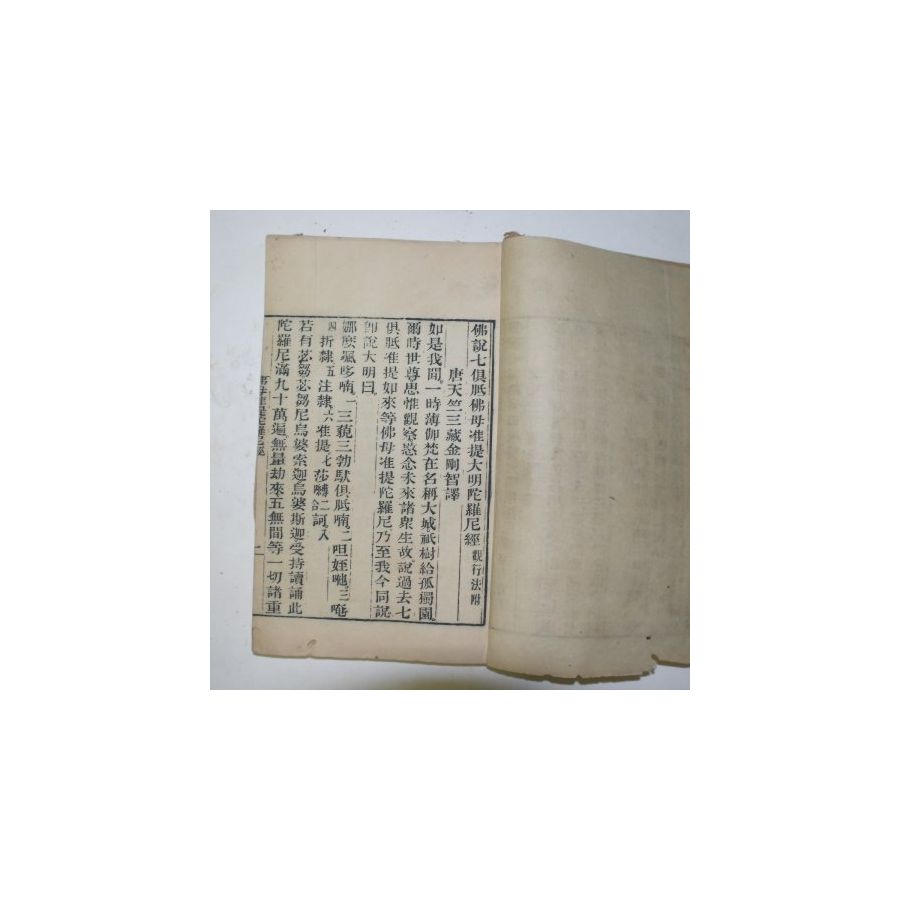 佛說七俱胝佛母准提大明陀羅尼經 觀行法附
唐天竺三藏金剛智譯
如是我聞一時薄伽梵在名稱大城祇樹給孤獨園
爾時世尊思惟觀察愍念未來諸衆生故說過去七
俱胝准提如來等佛母准提陀羅尼乃至我今同說
卽說大明曰
娜麼颯哆喃一三藐三勃馱俱胝喃二怛姪他三唵
四折隸五注隸六准提七莎嚩二合訶八
若有苾芻苾芻尼烏婆索迦烏婆斯迦受持讀誦此
陀羅尼滿九十萬遍無量劫來五無間等一切諸重